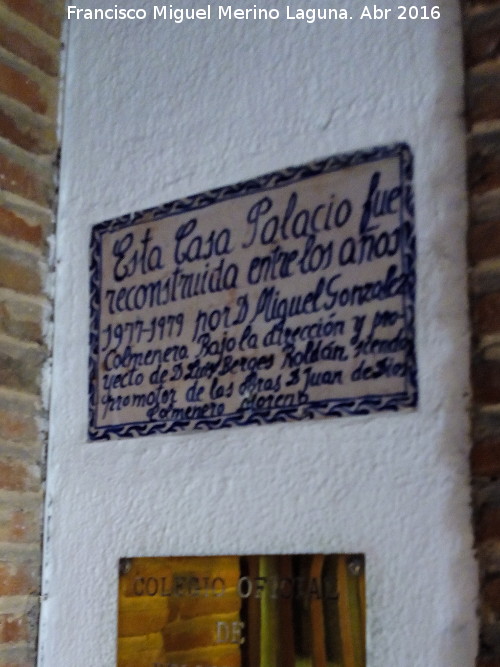 Francisco Miguel Merino Laguna. Abr 2016
Esta Casa Palacio fue
reconstruida entre los años
1977-1979 por D. Miguel Gonzalez
Colmenero Bajo la dirección y pro-
yecto de D. Luis Berges Roldán siendo
promotor de las obras D. Juan de Dios
Colmenero Moreno
COLEGIO OFICIAL
DE